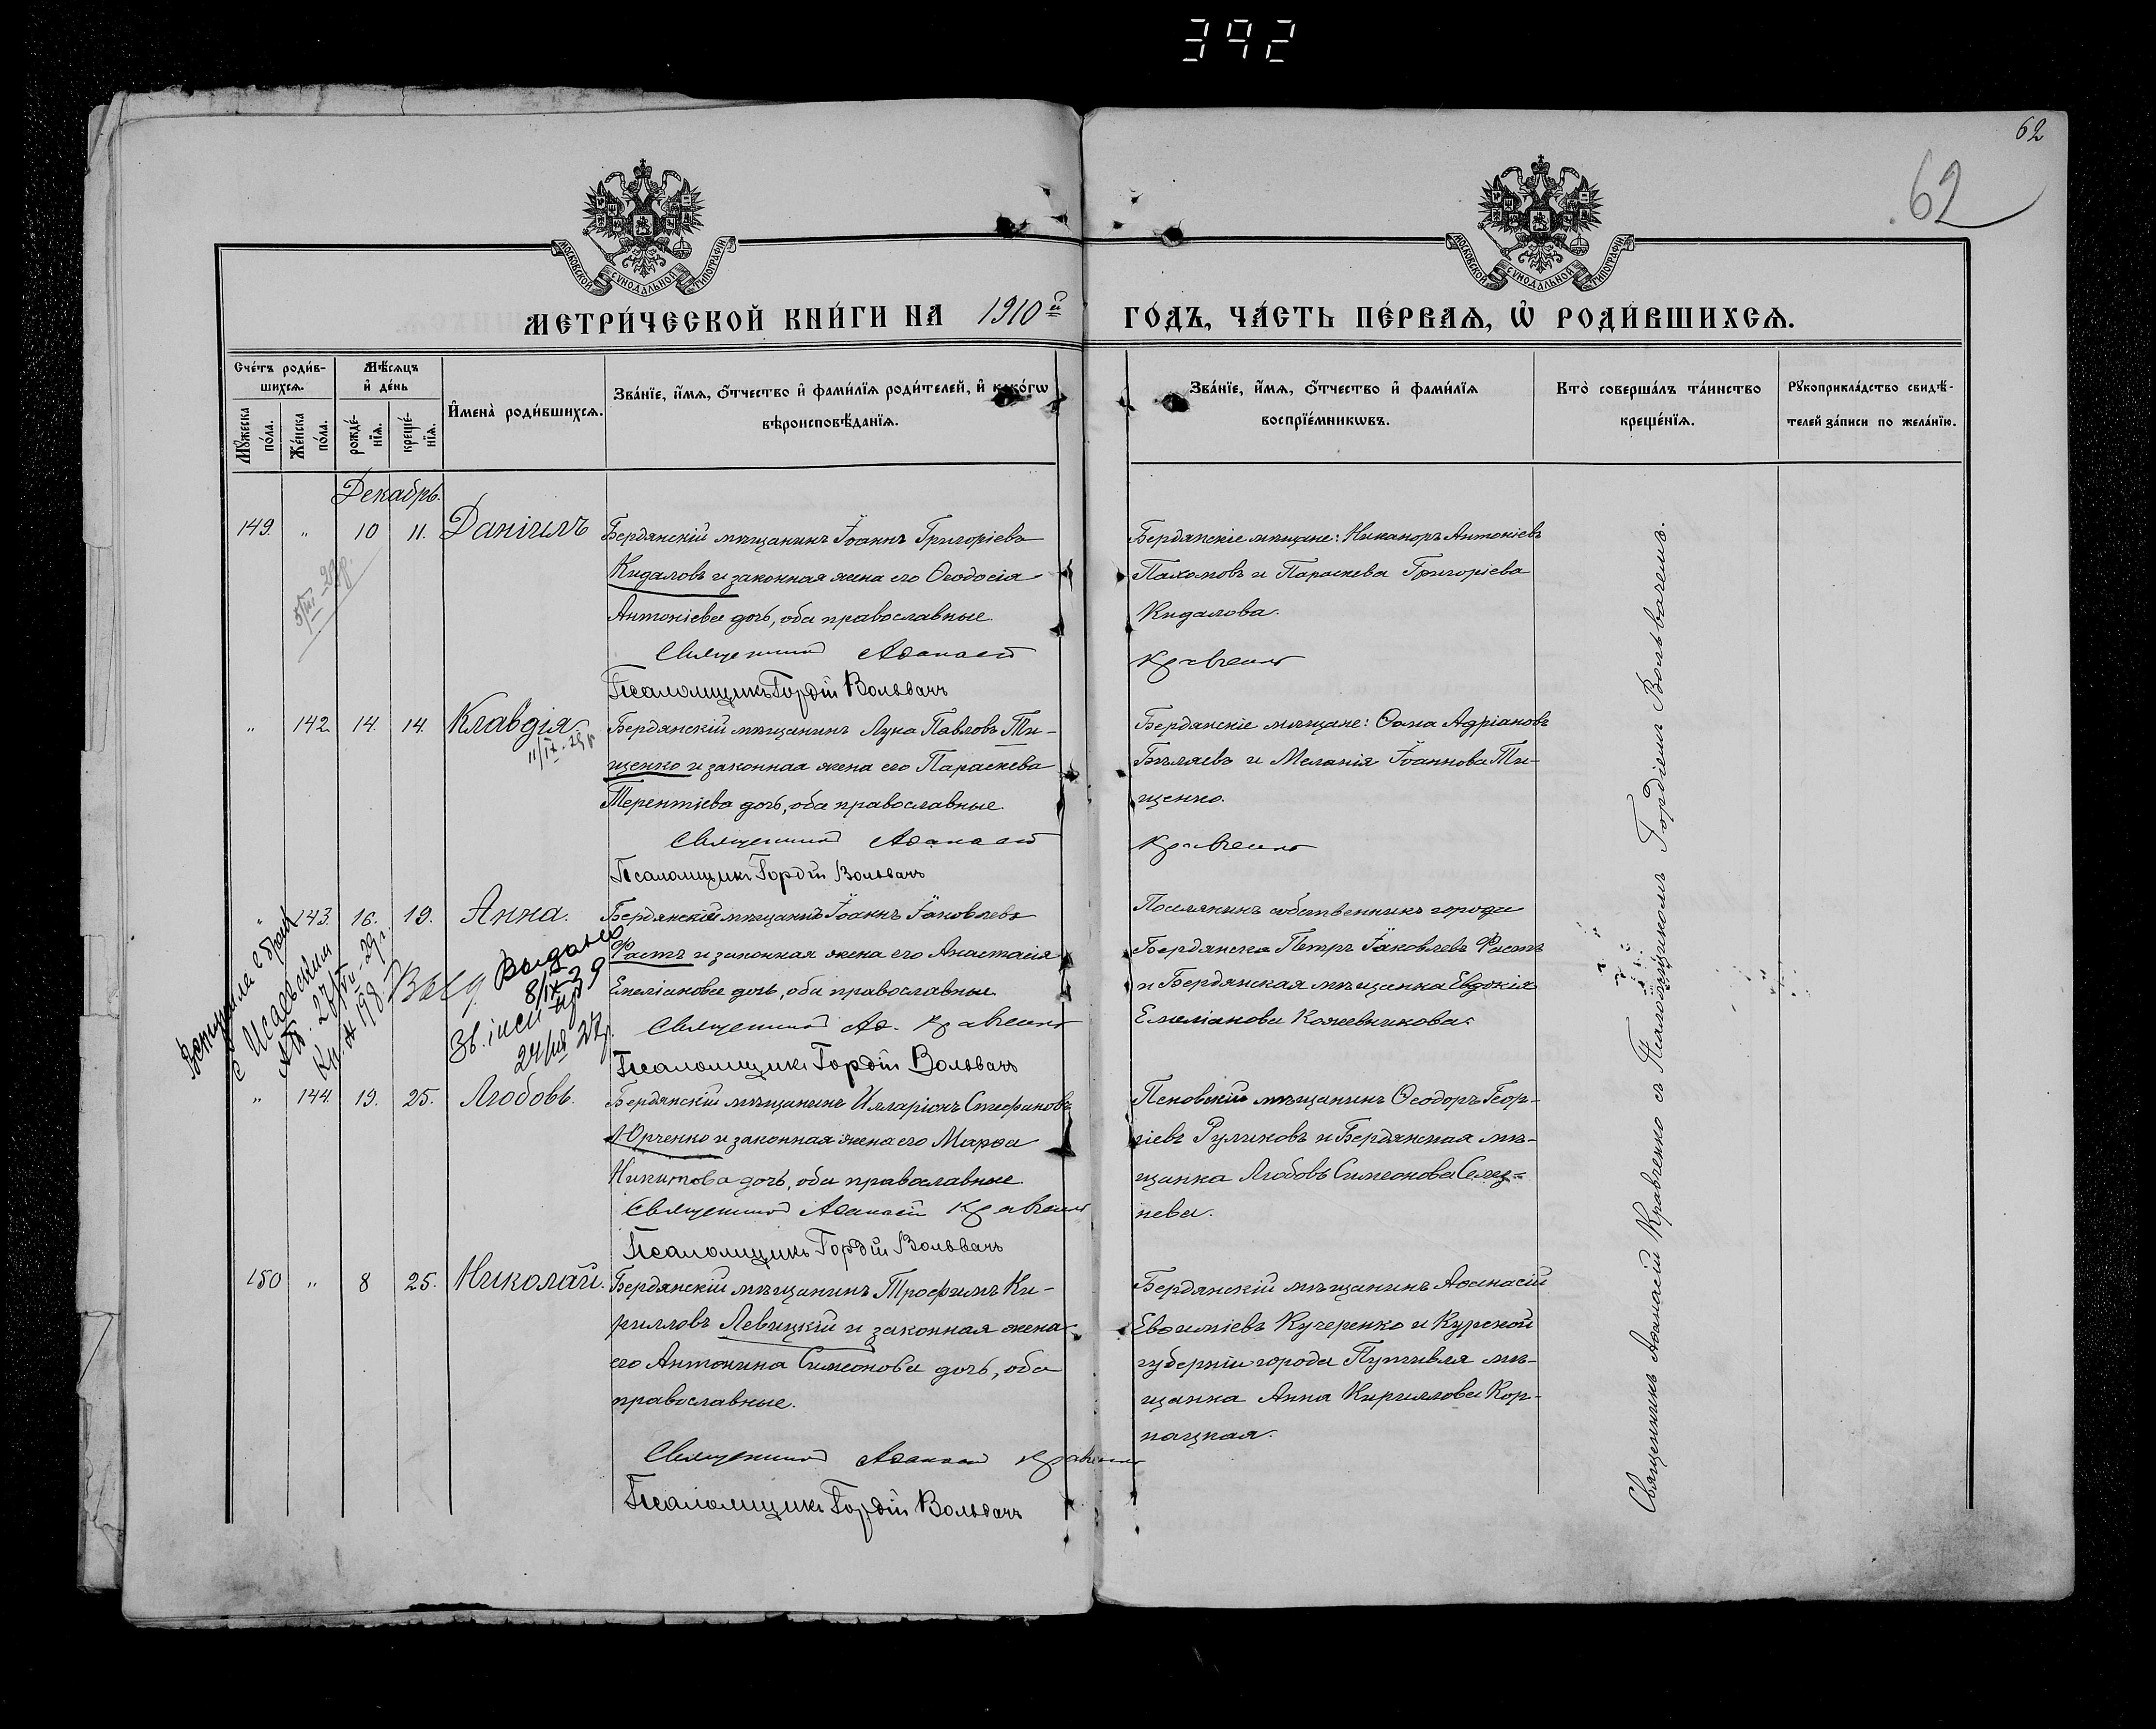 392
62
62
МОСКОВСКОЙ СУНОДАЛЬНОЙ ТИПОГРАФІИ
МОСКОВСКОЙ СУНОДАЛЬНОЙ ТИПОГРАФІИ
МЕТРИ́ЧЕСКОЙ КНИ́ГИ НА 1910й ГО́ДЪ, ЧА́СТЬ ПЕ́РВАѦ, Ѽ РОДИ́ВШИХСѦ.
Сче́тъ роди́в-
шихсѧ.
Мꙋ́жеска по́ла.
Же́нска по́ла.
Мѣ́сѧцъ
и҆ де́нь
рожде́-
нїѧ.
креще́-
нїѧ.
И҆мена̀ роди́вшихсѧ.
Зва́нїе, и҆́мѧ, ѻ҆́тчество и҆ фами́лїѧ роди́телей, и҆ како́гѡ
вѣроисповѣ́данїѧ.
Зва́нїе, и҆́мѧ, ѻ҆́тчество и҆ фами́лїѧ
воспрїе́мникѡвъ.
Кто̀ соверша́лъ та́инство
креще́нїѧ.
Рꙋкоприкла́дство свидѣ́-
телей за́писи по жела́нїю.
Декабрь.
149. " 10 11. Даніилъ
Бердянскій мѣщанинъ Іоаннъ Григоріевъ
Кидаловъ и законная жена его Ѳеодосія
Антоніева дочь, оба православные.
Священникъ Аѳанасій Кравченко
Псаломщикъ Гордій Вольвачъ
Бердянскіе мѣщане: Никаноръ Антоніевъ
Пахомовъ и Параскева Григоріева
Кидалова.
" 142. 14. 14. Клавдія
11/IX-29 г
Бердянскій мѣщанинъ Лука Павловъ Ти-
щенко и законная жена его Параскева
Терентіева дочь, оба православные.
Священникъ Аѳанасій Кравченко
Псаломщикъ Гордій Вольвачъ
Бердянскіе мѣщане: Ѳома Адріановъ
Бѣляевъ и Меланія Іоаннова Ти-
щенко.
" 143. 16. 19. Анна.
Вступила в бракъ
с Исаевским
Выдано
8/IX-29
Бердянскій мѣщанинъ Іоаннъ Іаковлевъ
Фастъ и законная жена его Анастасія
Емеліанова дочь, оба православные.
Священникъ Аѳ. Кравченко
Псаломщикъ Гордій Вольвачъ
Поселянинъ собственникъ города
Бердянска Петръ Іаковлевъ Фастъ
и Бердянская мѣщанка Евдокія
Емеліанова Кожевникова.
" 144. 19. 25. Любовь.
Бердянскій мѣщанинъ Илларіонъ Стефановъ
Юрченко и законная жена его Марѳа
Никитова дочь, оба православные.
Священникъ Аѳанасій Кравченко
Псаломщикъ Гордій Вольвачъ
Псковскій мѣщанинъ Ѳеодоръ Геор-
гіевъ Руликовъ и Бердянская мѣ-
щанка Любовь Симеонова
150 " 8 25. Николай.
Бердянскій мѣщанинъ Трофимъ Ки-
рилловъ Левицкій и законная жена
его Антонина Симеонова дочь, оба
православные.
Священникъ Аѳанасій Кравченко
Псаломщикъ Гордій Вольвачъ
Бердянскій мѣщанинъ Аѳанасій
Евѳиміевъ Кучеренко и Курской
губерніи города Путивля мѣ-
щанка Анна Кириллова Кор-
пацкая.
Священникъ Аѳанасій Кравченко съ Псаломщикомъ Гордіемъ Вольвачемъ.